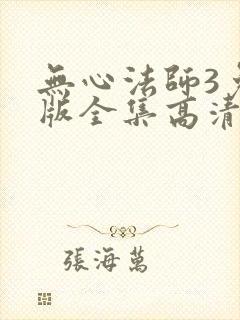 無心法師3
版全集高清
張海萬